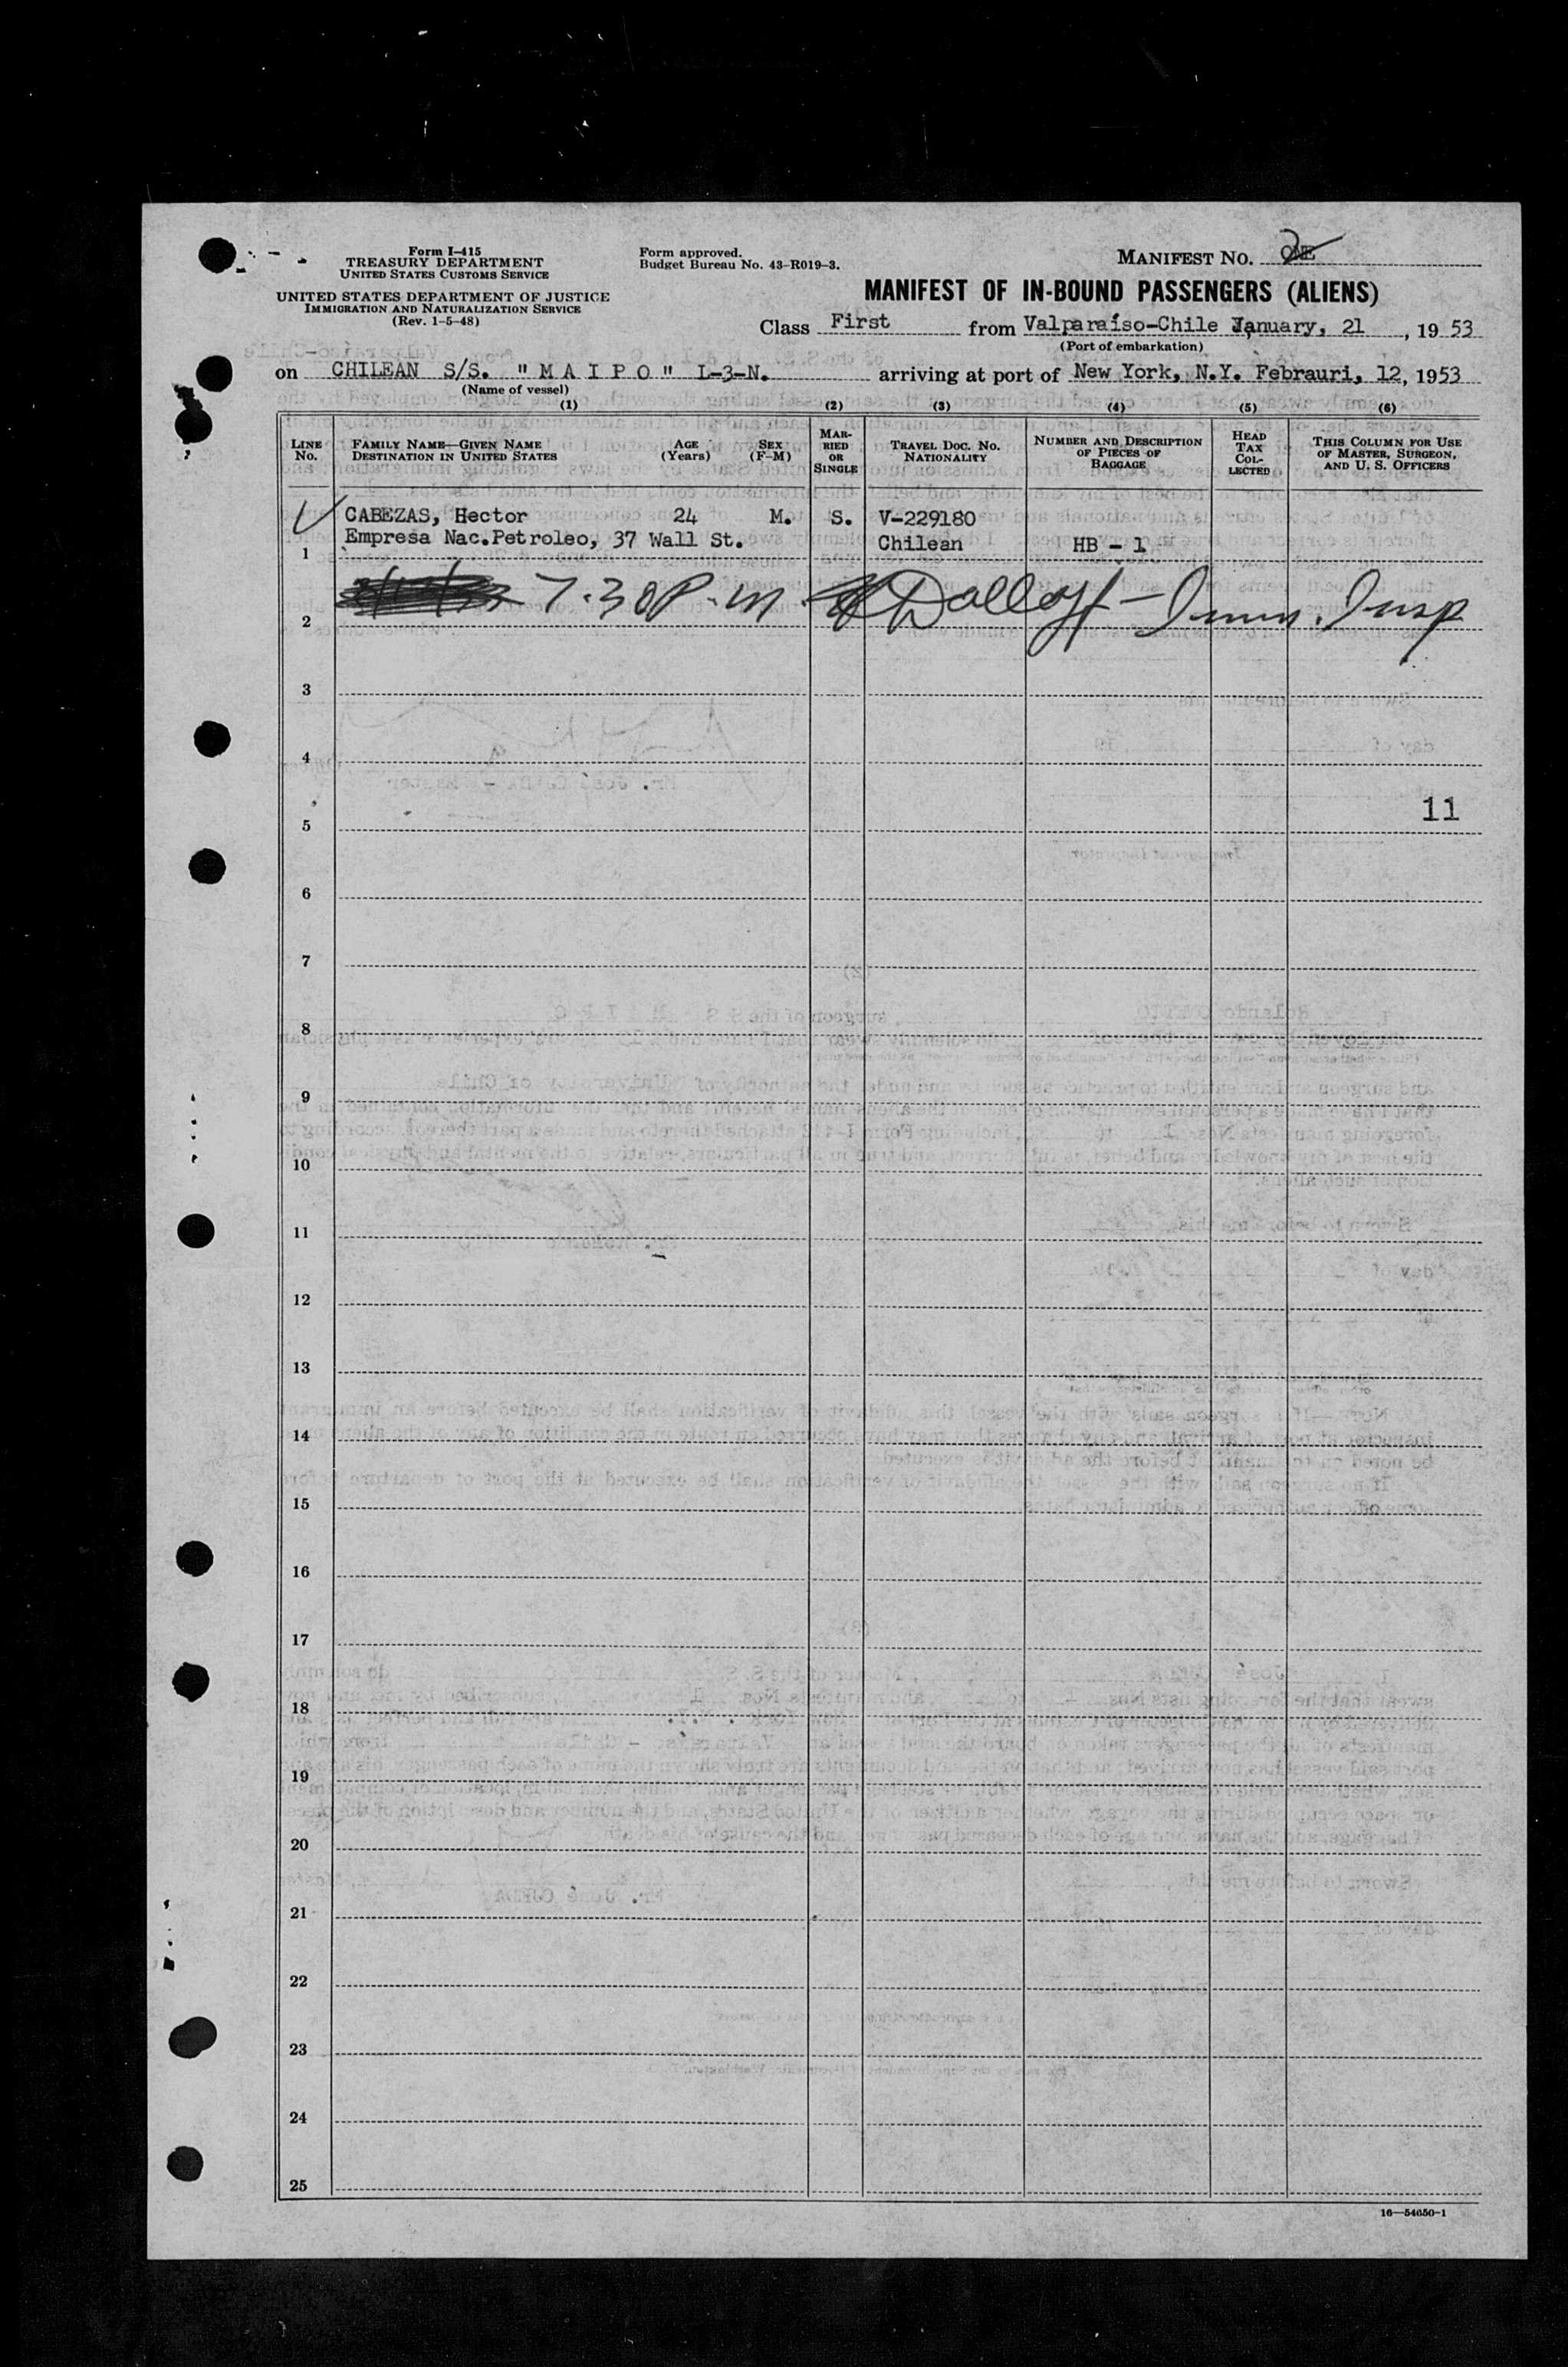 Form I-415
TREASURY DEPARTMENT
UNITED STATES CUSTOMS SERVICE
UNITED STATES DEPARTMENT OF JUSTICE
IMMIGRATION AND NATURALIZATION SERVICE
(Rev. 1-5-48)
Form approved.
Budget Bureau No. 43-R019-3.
MANIFEST NO. 2
MANIFEST OF IN-BOUND PASSENGERS (ALIENS)
Class First from Valparaíso-Chile January, 21, 1953
(Port of embarkation)
on CHILEAN S/S. "M A I P O" L-3-N. arriving at port of New York, N.Y. Febrauri, 12, 1953
(Name of vessel)
(1) (2) (3) (4) (5) (6)
LINE No. FAMILY NAME—GIVEN NAME DESTINATION IN UNITED STATES AGE (Years) SEX (F-M) MARRIED OR SINGLE TRAVEL DOC. NO. NATIONALITY NUMBER AND DESCRIPTION OF PIECES OF BAGGAGE HEAD TAX COLLECTED THIS COLUMN FOR USE OF MASTER, SURGEON, AND U. S. OFFICERS
CABEZAS, Hector 24 M. S. V-229180
1 Empresa Nac.Petroleo, 37 Wall St. Chilean HB - 1
2 7.30 P.M. Imm. Insp
3
4
11
5
6
7
8
9
10
11
12
13
14
15
16
17
18
19
20
21
22
23
24
25
16—54650-1